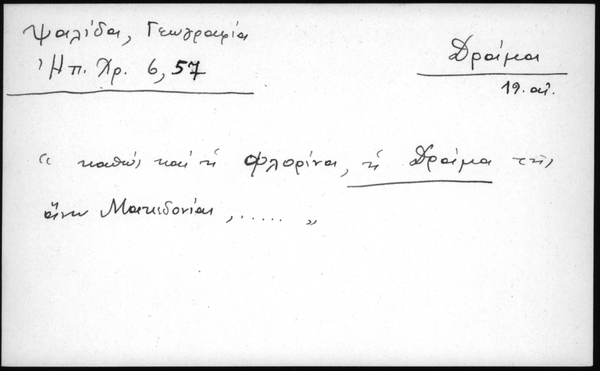 Ψαλίδα, Γεωγραφία
Ἠπ. Χρ. 6, 57
Δράμα
19. αἰ.
" καθὼς καὶ ἡ Φλορίνα, ἡ Δράμα τῆς
ἄνω Μακεδονίας, ..... "